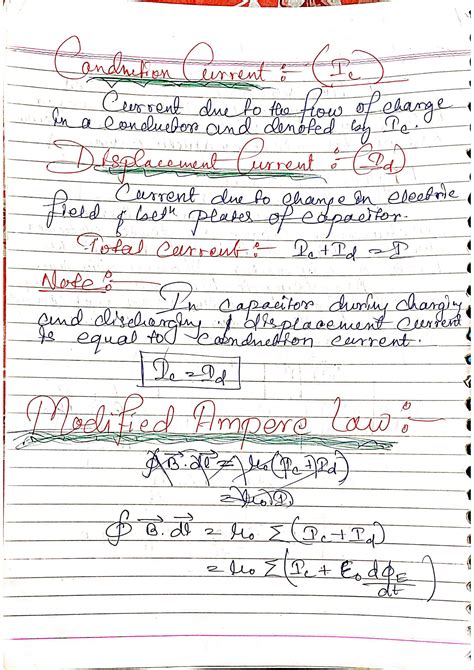 Conduction Current :- (Ic)
Current due to the flow of charge
in a conductor and denoted by Ic.
Displacement Current :- (Id)
Current due to change in electric
field of betn plates of capacitor.
Total Current :- Ic + Id = I
Note :-
In capacitor during charging
and discharging, displacement current
is equal to conduction current.
Ic = Id
Modified Ampere Law :-
∮B⃗.dl⃗ = μ₀(Ic+Id)
= μ₀(I)
∮ B⃗.dl⃗ = μ₀ Σ (Ic + Id)
= μ₀ Σ (Ic + ε₀ dφE/dt)